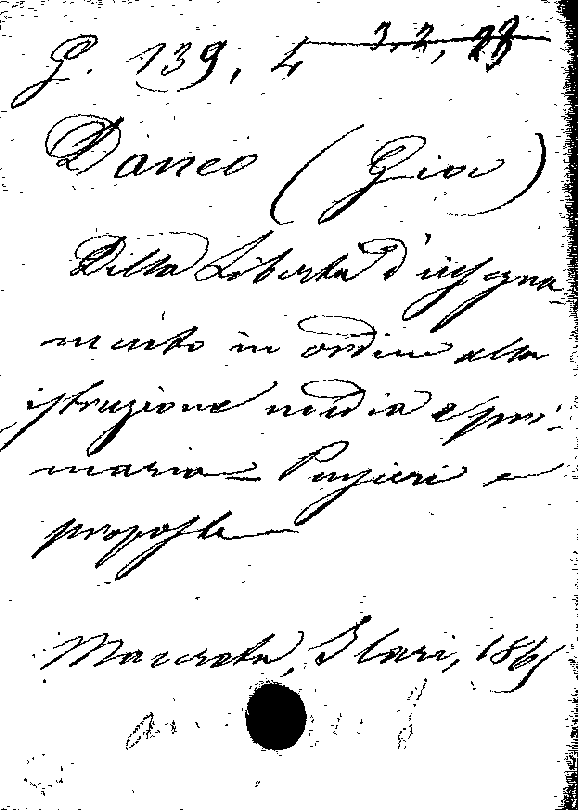 G. 139, 4 3.2, 28
Daneo (Gio)
Della Libertà d'insegna-
mento in ordine alla
istruzione media e pri-
maria - Pensieri e
proposte
Macerata, Ilari, 1865